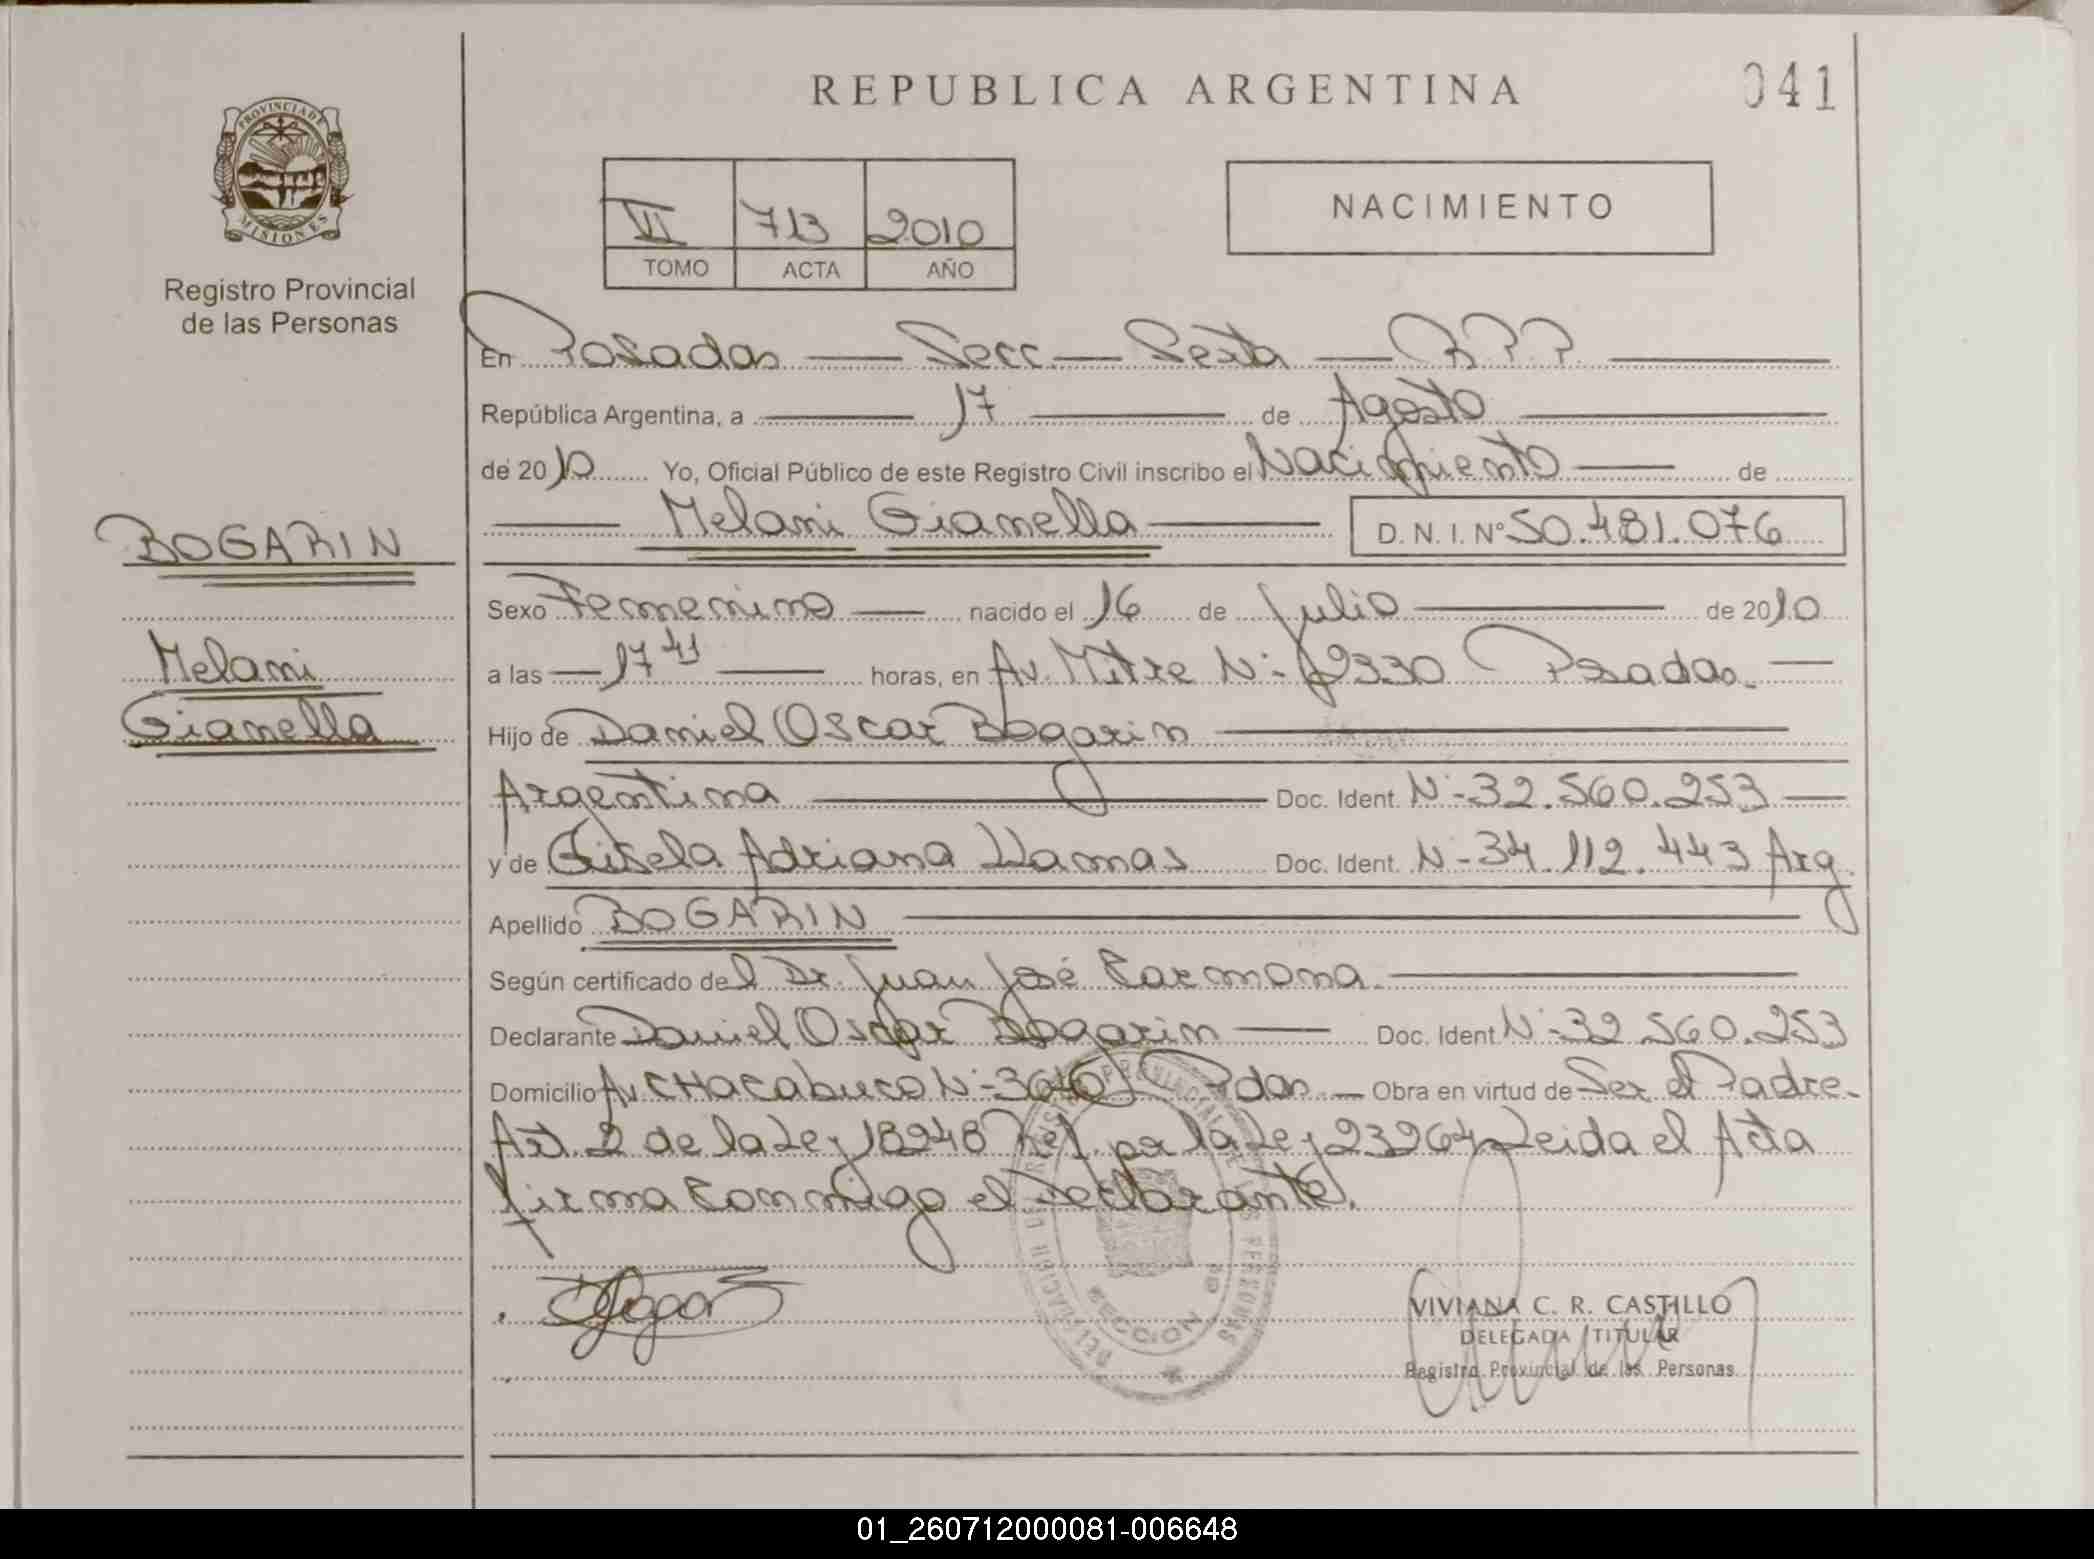 REPUBLICA ARGENTINA
041
PROVINCIA DE
MISIONES
Registro Provincial
de las Personas
VI 713 2010
TOMO ACTA AÑO
NACIMIENTO
En Posadas — Secc. — Sexta — R.P.P.
República Argentina, a 17 de Agosto
de 2010 Yo, Oficial Público de este Registro Civil inscribo el Nacimiento — de
Melani Gianella D.N.I. Nº 50.481.076
BOGARIN
Melani
Gianella
Sexo Femenino — nacido el 16 de Julio de 2010
a las — 17 41 — horas, en Av. Mitre Nº 2330 Posadas. —
Hijo de Daniel Oscar Bogarin
Argentina Doc. Ident. Nº 32.560.253 —
y de Gisela Adriana Llamas Doc. Ident. Nº 34.112.443 Arg.
Apellido BOGARIN
Según certificado del Dr. Juan José Carmona.
Declarante Daniel Oscar Bogarin — Doc. Ident Nº 32.560.253
Domicilio Av. CHacabuco Nº 3040 Pdas. — Obra en virtud de Ser el Padre.-
Art. 2 de la Ley 18248 Ref. por la Ley 23264 Leida el Acta
firma Conmigo el Declarante.
SECCION 6ª
VIVIANA C. R. CASTILLO
DELEGADA TITULAR
Registro Provincial de las Personas
01_260712000081-006648